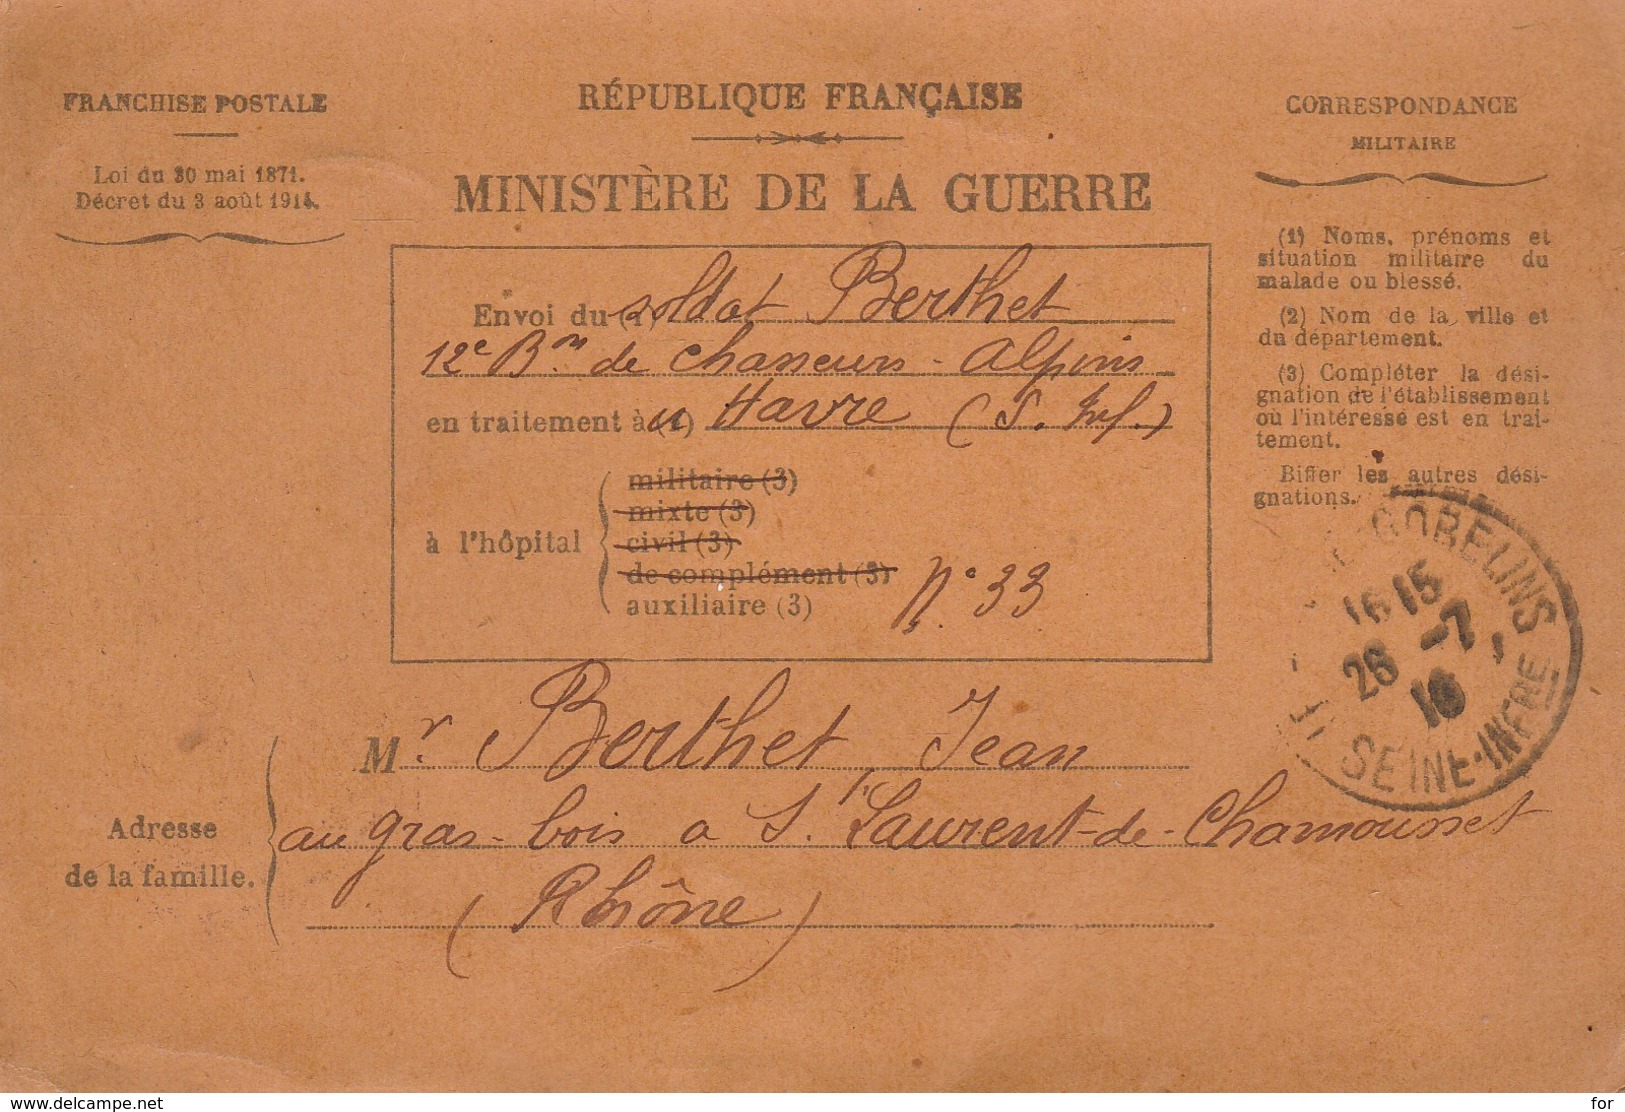 FRANCHISE POSTALE
Loi du 30 mai 1871.
Décret du 3 août 1914.
RÉPUBLIQUE FRANÇAISE
MINISTÈRE DE LA GUERRE
CORRESPONDANCE
MILITAIRE
(1) Noms, prénoms et
situation militaire du
malade ou blessé.
(2) Nom de la ville et
du département.
(3) Compléter la dési-
gnation de l'établissement
où l'intéressé est en trai-
tement.
Biffer les autres dési-
gnations.
Envoi du (1) soldat Berthet
12e Bon de chasseurs - Alpins
en traitement à Havre (S. Inf.)
à l'hôpital
militaire (3)
mixte (3)
civil (3)
de complément (3)
auxiliaire (3) N° 33
GOBELINS
16 15
26 -7
16
SEINE-INFRE
Mr Berthet Jean
Adresse
de la famille.
au gras-bois a St Laurent-de-Chamousset
(Rhône)
delcampe.net
for